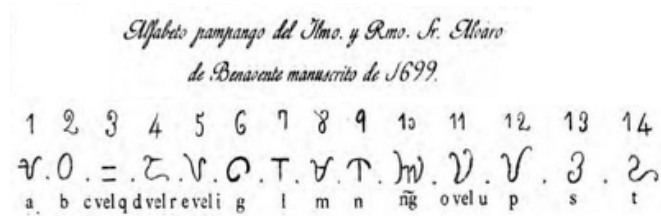 Alfabeto pampango del Ilmo. y Rmo. Sr. Alvaro
de Benavente manuscrito de 1699.
1 2 3 4 5 6 7 8 9 10 11 12 13 14
a b c vel q d vel r e vel i g l m n ñg o vel u p s t